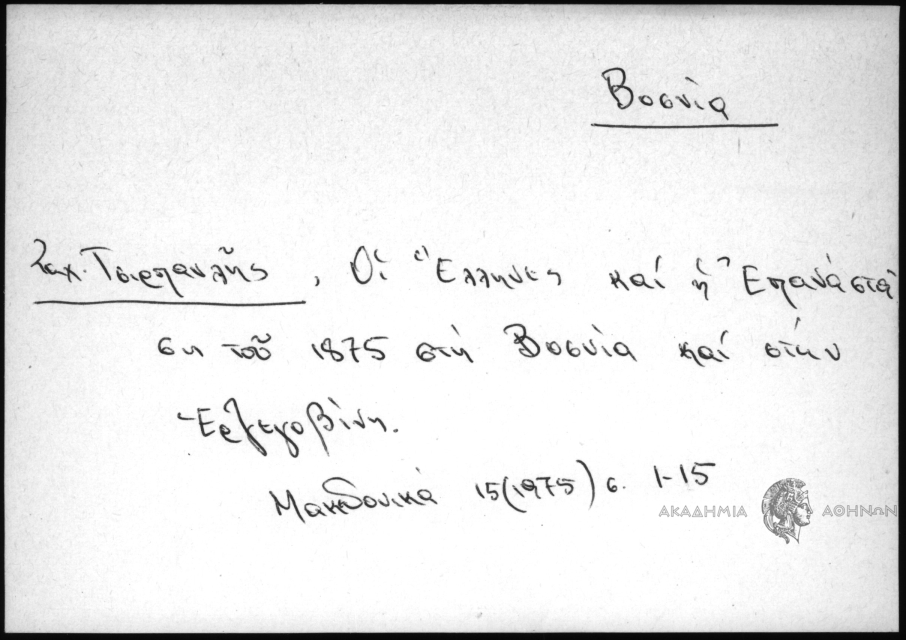 Βοσνία
Ζαχ. Τσιρπανλῆς, Οἱ Ἕλληνες καί ἡ Ἐπανάστα
ση τοῦ 1875 στή Βοσνία καί στήν
Ἑρζεγοβίνη.
Μακεδονικά 15(1975) σ. 1-15
ΑΚΑΔΗΜΙΑ ΑΘΗΝΩΝ